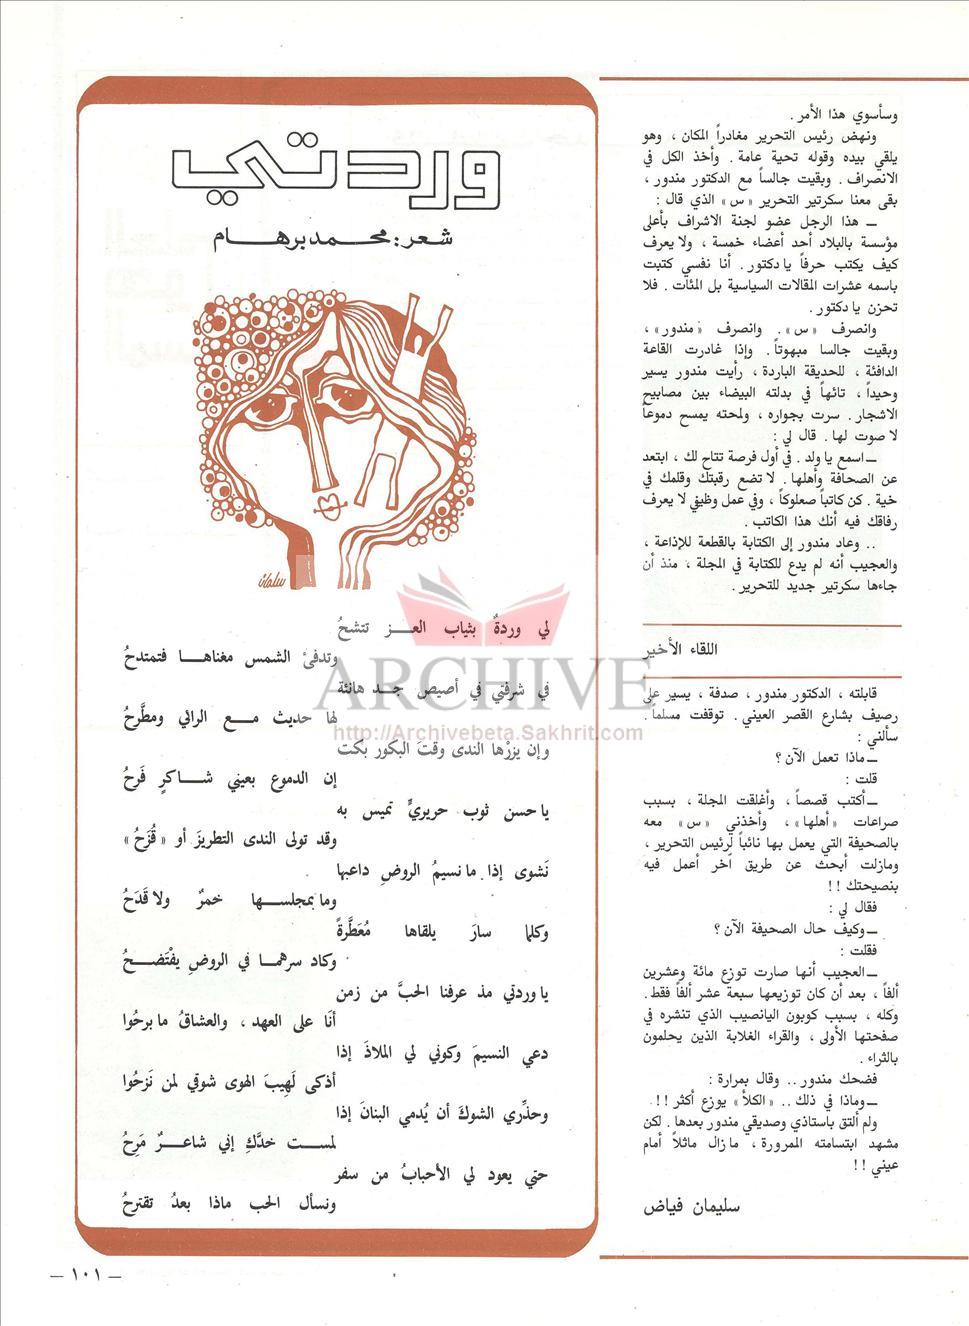 وسأسوي هذا الأمر .
ونهض رئيس التحرير مغادراً المكان ، وهو
يلقي بيده وقوله تحية عامة . وأخذ الكل في
الانصراف . وبقيت جالساً مع الدكتور مندور ،
بقى معنا سكرتير التحرير «س» الذي قال :
ــ هذا الرجل عضو لجنة الاشراف بأعلى
مؤسسة بالبلاد أحد أعضاء خمسة ، ولا يعرف
كيف يكتب حرفاً يا دكتور . أنا نفسي كتبت
باسمه عشرات المقالات السياسية بل المئات . فلا
تحزن يا دكتور .
وانصرف «س» . وانصرف «مندور» ،
وبقيت جالسا مبهوتاً . وإذا غادرت القاعة
الدافئة ، للحديقة الباردة ، رأيت مندور يسير
وحيداً ، تائهاً في بدلته البيضاء بين مصابيح
الاشجار . سرت بجواره ، ولمحته يمسح دموعاً
لا صوت لها . قال لي :
ــ اسمع يا ولد . في أول فرصة تتاح لك ، ابتعد
عن الصحافة وأهلها . لا تضع رقبتك وقلمك في
خية . كن كاتباً صعلوكاً ، وفي عمل وظيفي لا يعرف
رفاقك فيه أنك هذا الكاتب .
.. وعاد مندور إلى الكتابة بالقطعة للإذاعة ،
والعجيب أنه لم يدع للكتابة في المجلة ، منذ أن
جاءها سكرتير جديد للتحرير .
اللقاء الأخير
قابلته ، الدكتور مندور ، صدفة ، يسير على
رصيف بشارع القصر العيني . توقفت مسلماً .
سألني :
ــ ماذا تعمل الآن ؟
قلت :
ــ أكتب قصصاً ، وأغلقت المجلة ، بسبب
صراعات «أهلها» ، وأخذني «س» معه
بالصحيفة التي يعمل بها نائباً لرئيس التحرير ،
ومازلت أبحث عن طريق آخر أعمل فيه
بنصيحتك !!
فقال لي :
ــ وكيف حال الصحيفة الآن ؟
فقلت :
ــ العجيب أنها صارت توزع مائة وعشرين
ألفاً ، بعد أن كان توزيعها سبعة عشر ألفاً فقط .
وكله ، بسبب كوبون اليانصيب الذي تنشره في
صفحتها الأولى ، والقراء الغلابة الذين يحلمون
بالثراء .
فضحك مندور .. وقال بمرارة :
ــ وماذا في ذلك .. «الكلأ» يوزع أكثر !! .
ولم ألتق بأستاذي وصديقي مندور بعدها . لكن
مشهد ابتسامته الممرورة ، مازال ماثلاً أمام
عيني !!
سليمان فياض
وردتي
شعر : محمد برهام
سلمان
لي وردةٌ بثياب العـــز تتشحُ
وتدفئ الشمس مغناهـا فتمتدحُ
في شرفتي في أصيص جـد هانئة
لها حديث مـع الرائي ومطَّرحُ
وإن يزرْها الندى وقتَ البكور بكت
إن الدموع بعيني شـاكـرٍ فَرحُ
يا حسن ثوب حريريٍّ تميس به
وقد تولى الندى التطريزَ أو «قُزَحُ»
نَشوى إذا ما نسيمُ الروضِ داعبها
وما بمجلسـها خمرٌ ولا قَدَحُ
وكلما سارَ يلقاها مُعَطَّرةً
وكاد سرهمـا في الروضِ يفْتَضـحُ
يا وردتي مذ عرفنا الحبَّ من زمن
أنا على العهد ، والعشاقُ ما برحُوا
دعي النسيمَ وكوني لي الملاذَ إذا
أذكى لَهِيبَ الهوى شوقي لمن نَزحُوا
وحذِّري الشوكَ أن يُدمي البنانَ إذا
لمست خدَّكِ إني شاعـرٌ مَرِحُ
حتي يعود لي الأحبابُ من سفر
ونسأل الحب ماذا بعدُ تقترحُ
ARCHIVE
http://Archivebeta.Sakhrit.com
— ١٠١ —